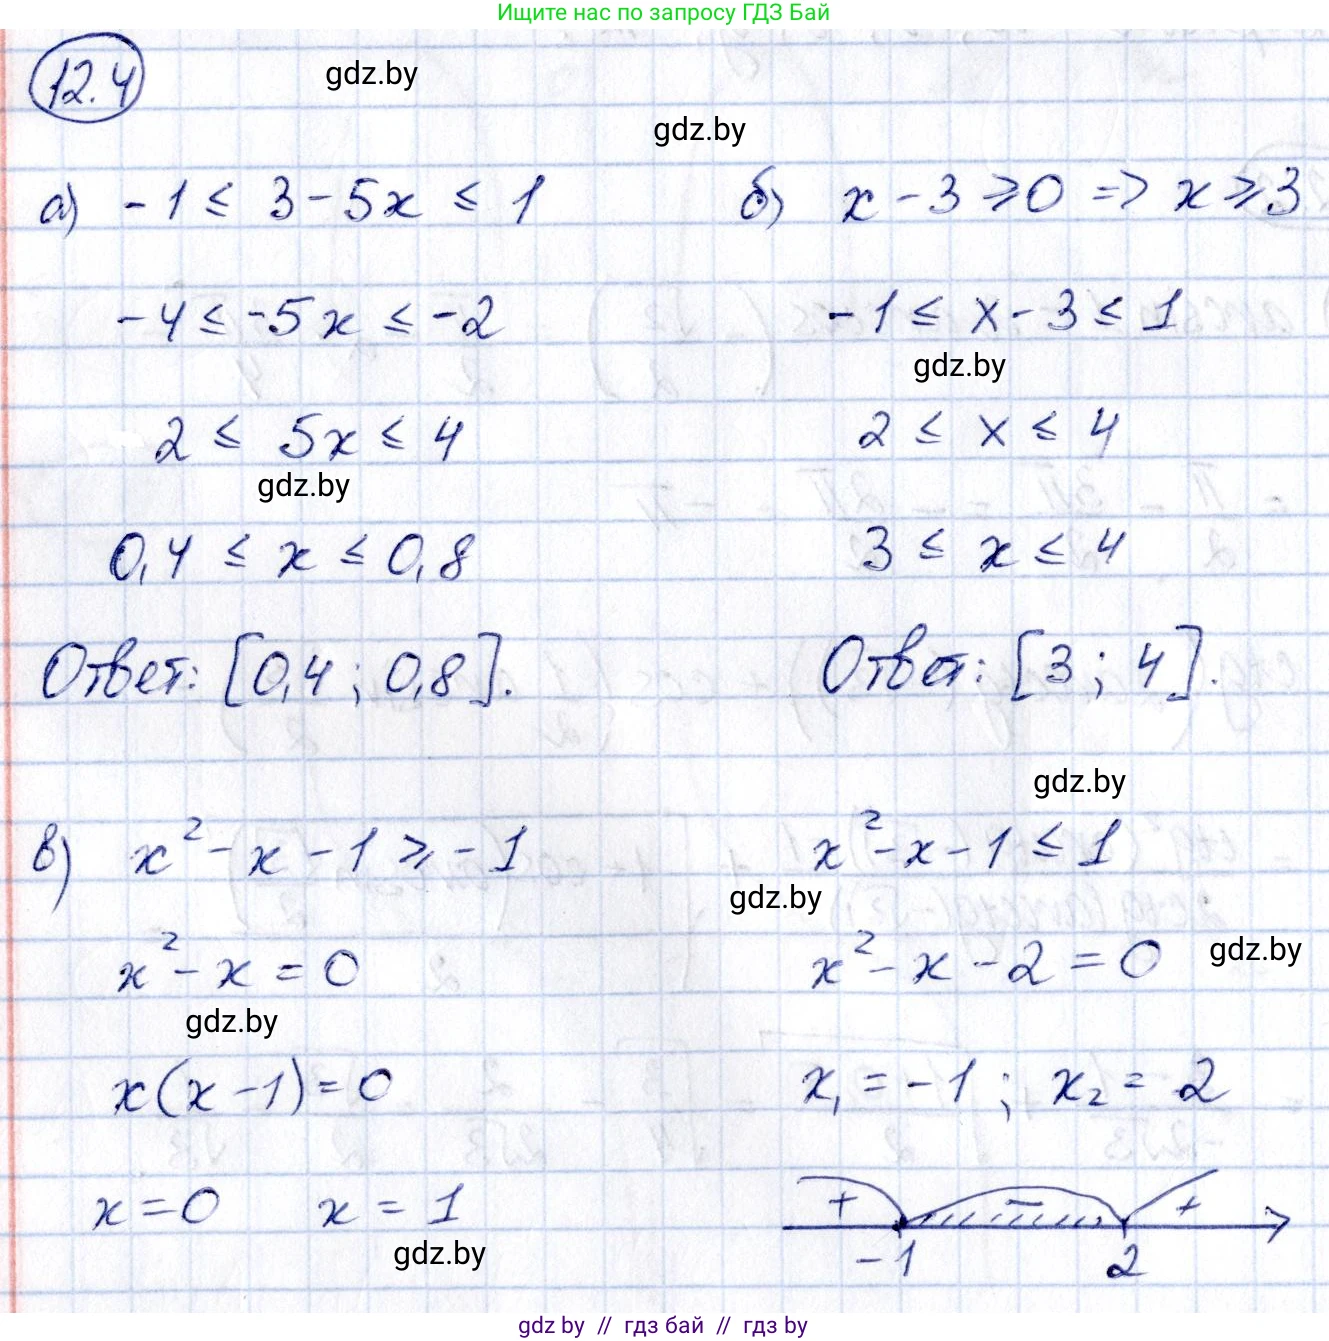 Ищите нас по запросу ГДЗ Бай
12.4
gdz.by
gdz.by
а) -1 ≤ 3 - 5x ≤ 1
-4 ≤ -5x ≤ -2
2 ≤ 5x ≤ 4
gdz.by
0,4 ≤ x ≤ 0,8
Ответ: [0,4 ; 0,8].
б) x - 3 ⩾ 0 => x ⩾ 3
-1 ≤ x - 3 ≤ 1
gdz.by
2 ≤ x ≤ 4
3 ≤ x ≤ 4
Ответ: [3 ; 4].
gdz.by
в) x² - x - 1 ⩾ -1
x² - x = 0
gdz.by
x(x - 1) = 0
x = 0 x = 1
gdz.by
x² - x - 1 ≤ 1
gdz.by
x² - x - 2 = 0
gdz.by
x₁ = -1 ; x₂ = 2
+ - +
-1 2
gdz by // гдз бай // гдз by